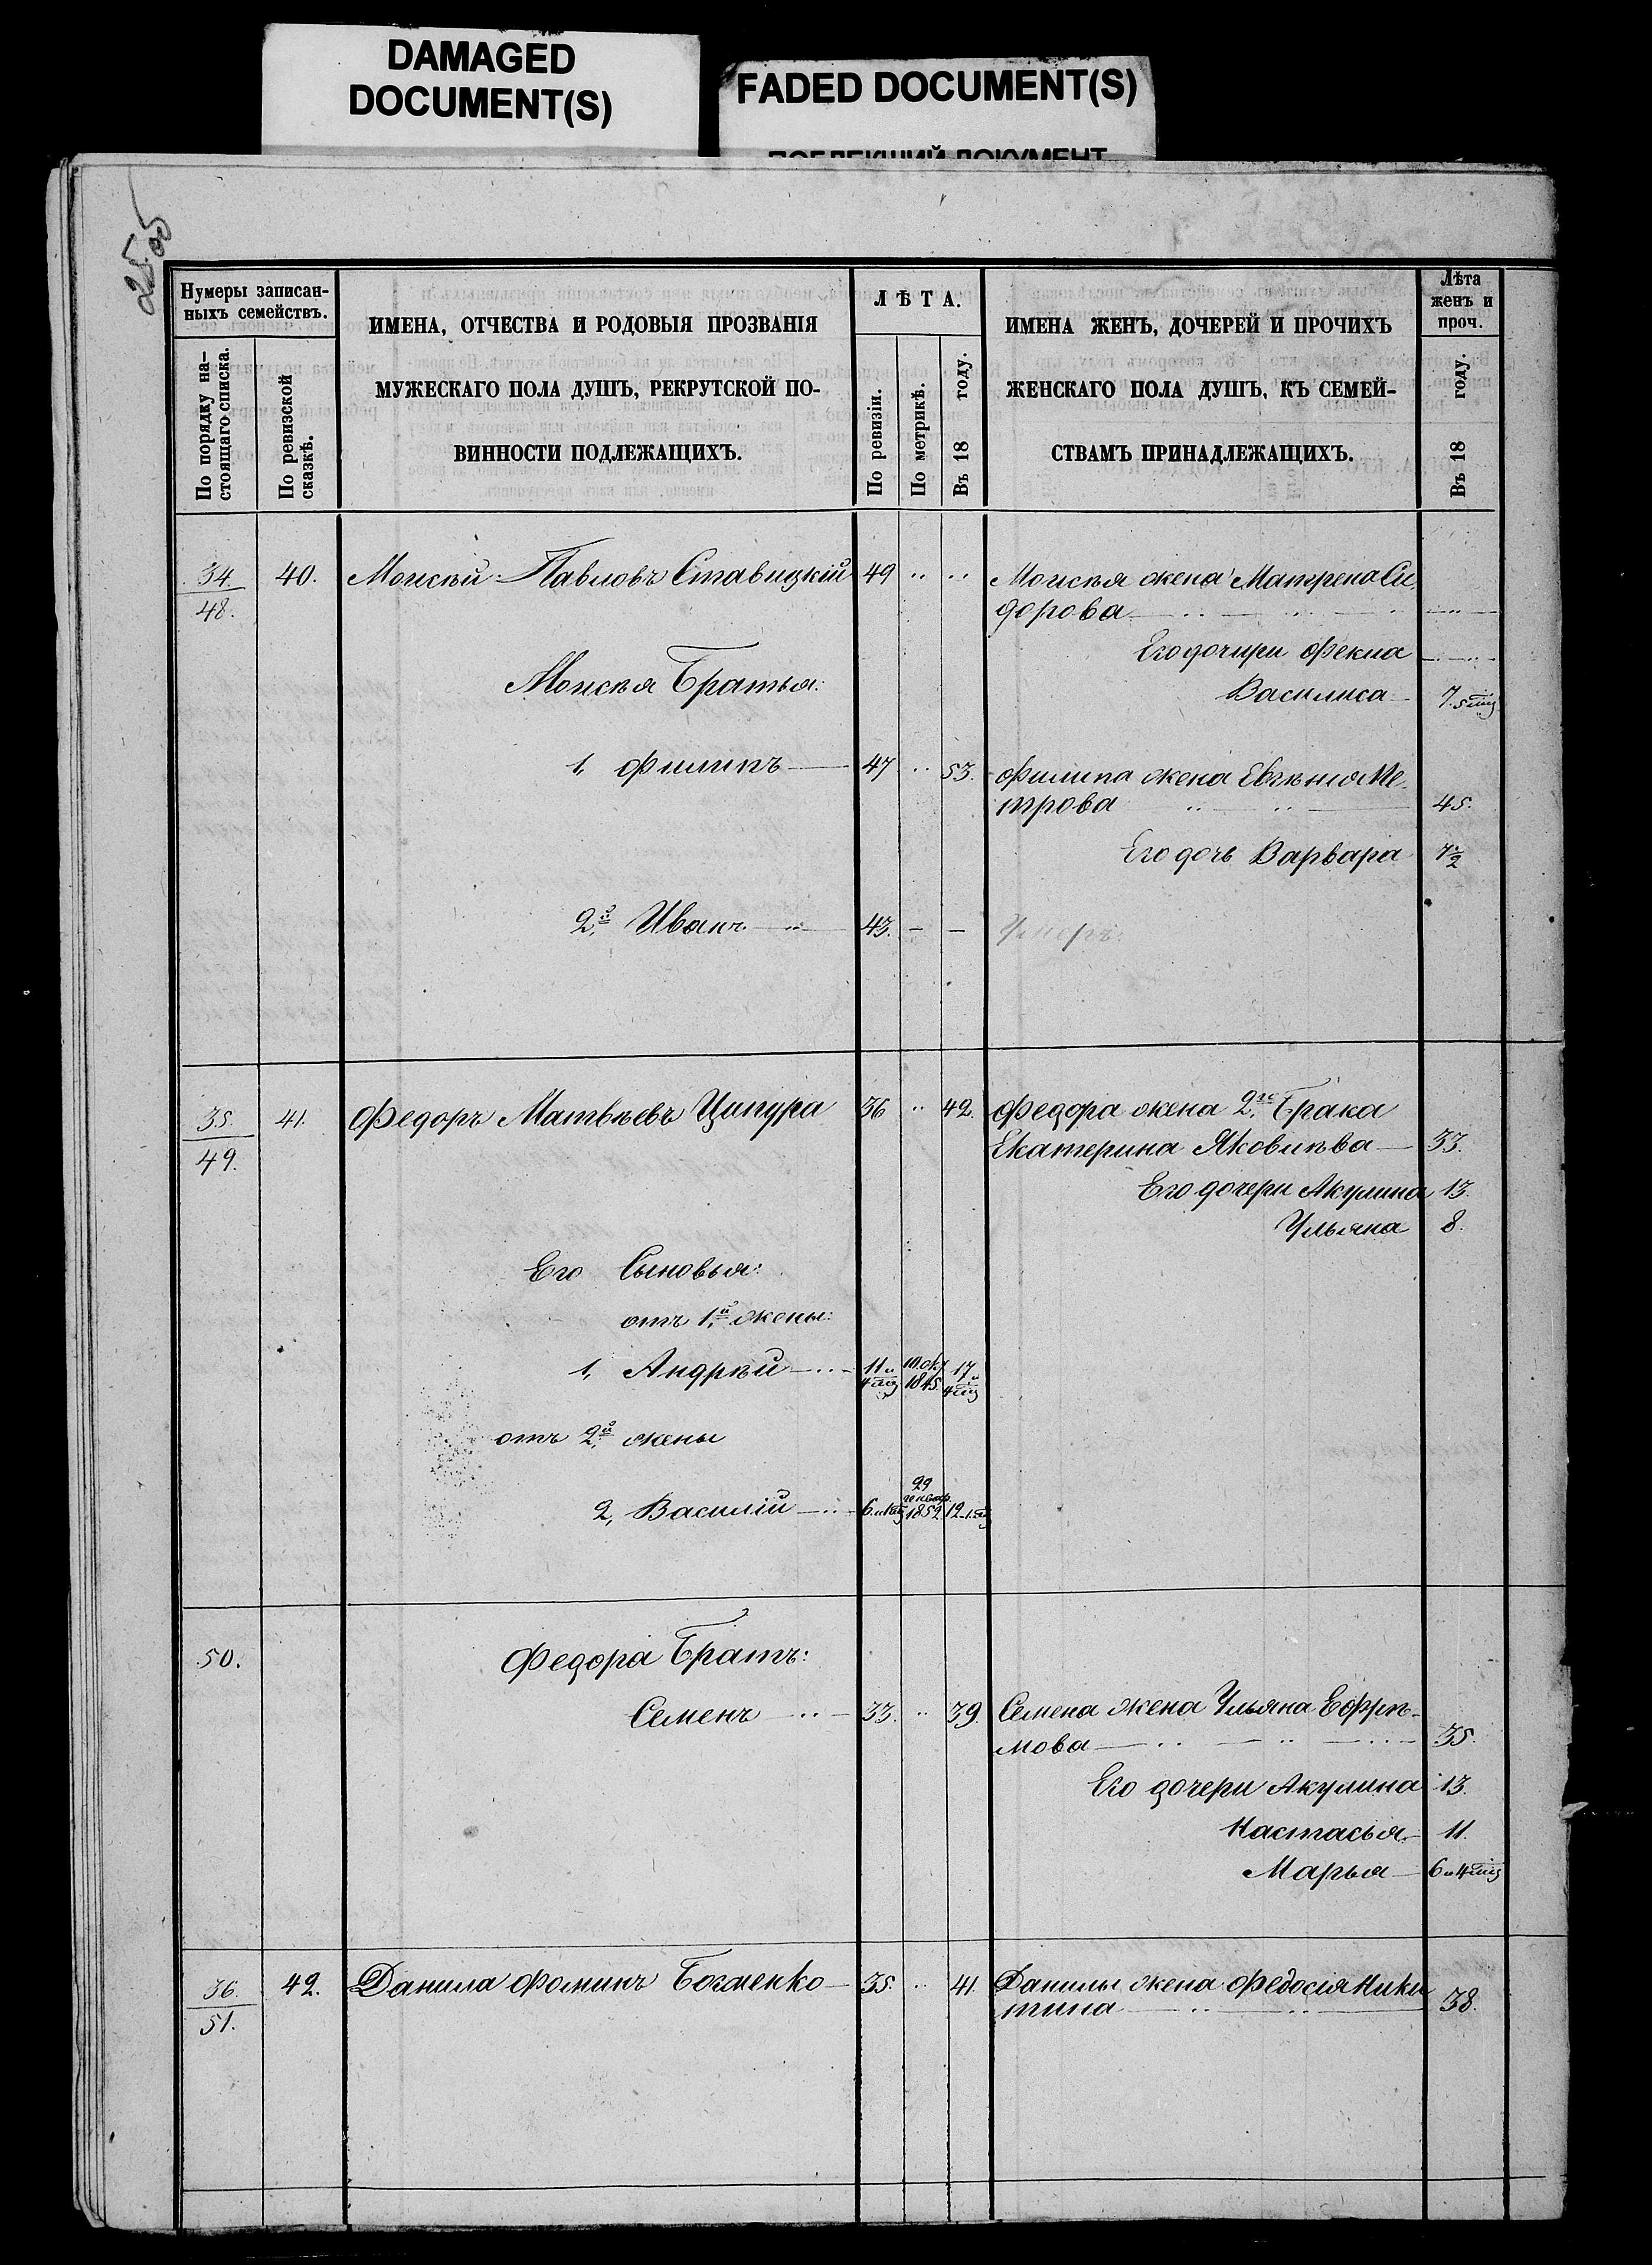 DAMAGED
DOCUMENT(S)
FADED DOCUMENT(S)
Нумеры записан-
ныхъ семействъ.
По порядку на-
стоящаго списка.
По ревизской
сказкѣ.
ИМЕНА, ОТЧЕСТВА И РОДОВЫЯ ПРОЗВАНІЯ
МУЖЕСКАГО ПОЛА ДУШЪ, РЕКРУТСКОЙ ПО-
ВИННОСТИ ПОДЛЕЖАЩИХЪ.
ЛѢТА.
По ревизіи.
По метрикѣ.
Въ 18 году.
ИМЕНА ЖЕНЪ, ДОЧЕРЕЙ И ПРОЧИХЪ
ЖЕНСКАГО ПОЛА ДУШЪ, КЪ СЕМЕЙ-
СТВАМЪ ПРИНАДЛЕЖАЩИХЪ.
Лѣта
женъ и
проч.
Въ 18 году.
34 40. Моисѣй Павловъ Ставицкій 49 Моисѣя жена Матрена Си
48. дорова
Его дочири Фекла
Моисѣя Братья:
Василиса 7.
1, Филипъ 47 53. Филипа жена
трова 45.
Его дочь Варвара
2й, Иванъ 43. — — Умеръ.
35. 41. Федоръ Матвѣевъ Ципура 36 42. Федора жена 2го, Брака
49. Екатерина Яковлѣва 33.
Его дочери Акулина 13.
Ульяна 8.
Его Сыновья:
отъ 1й, жены:
1, Андрѣй 11 и 4 мц 10 окт 1845. 17 и 4 мц
отъ 2й, жены
2, Василій 6 и 1 мц 29 генвар 1852 12 1 мц
50. Федора Братъ:
Семенъ 33. 39. Семена жена Ульяна Ефрѣ-
мова 35.
Его дочери Акулина 13.
Настасья 11.
Марья 6 и 4 мц
36. 42. Данила Фоминъ Боженко 35. 41. Данилы жена Федосія Ники
51. тина 38.